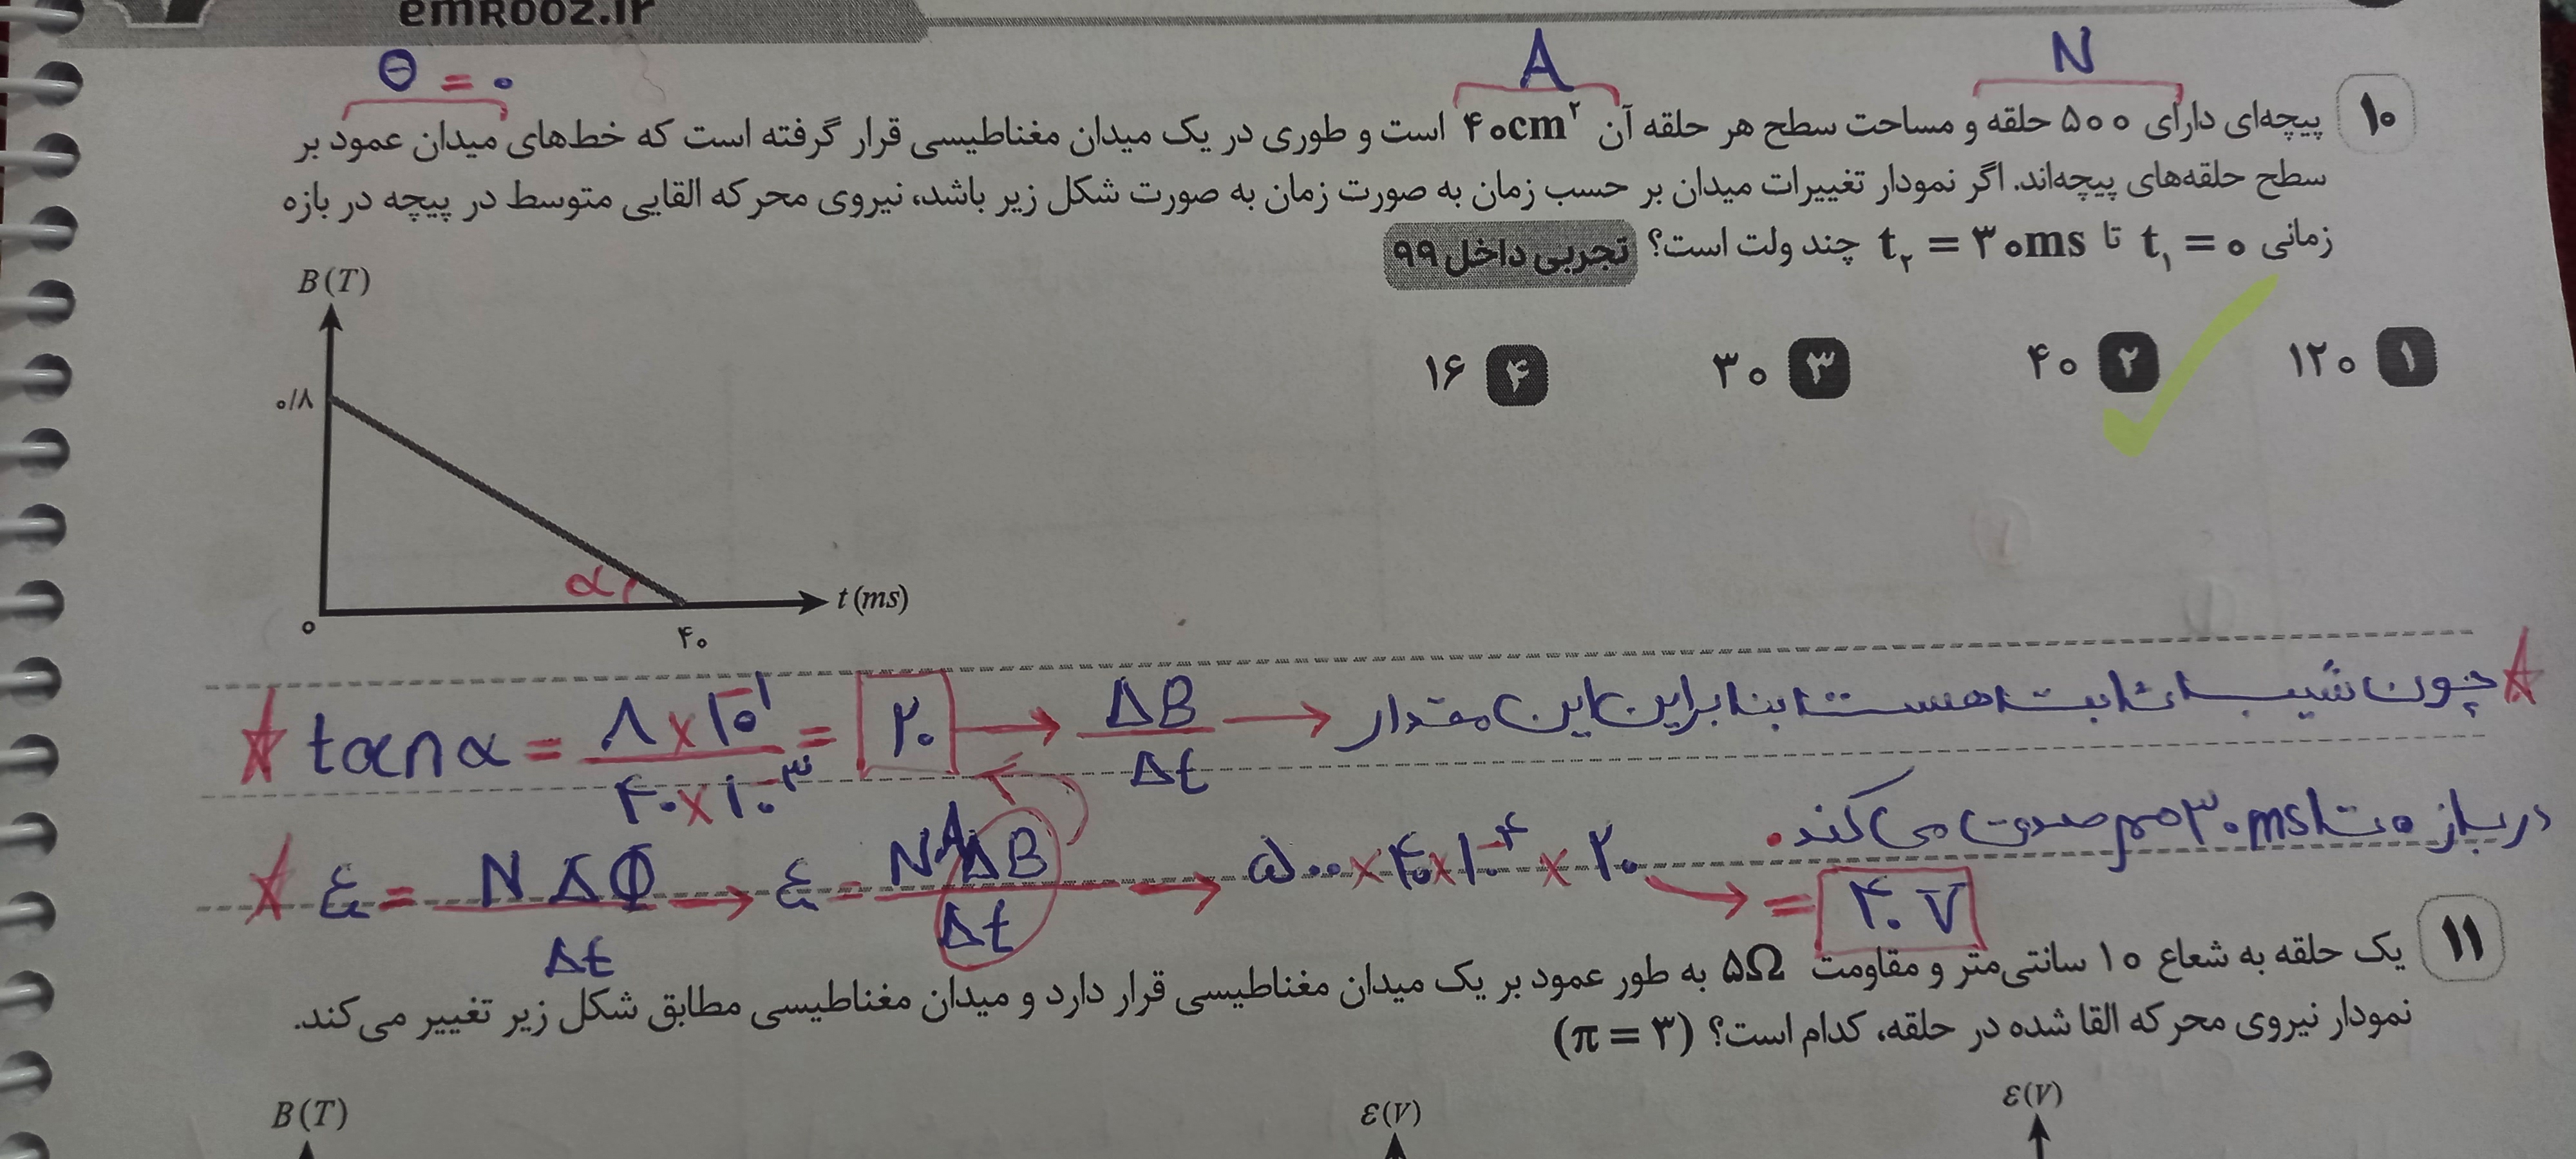 emrooz.ir
θ = ۰
A
N
۱۰ پیچه‌ای دارای ۵۰۰ حلقه و مساحت سطح هر حلقه آن ۴۰cm² است و طوری در یک میدان مغناطیسی قرار گرفته است که خط‌های میدان عمود بر
سطح حلقه‌های پیچه‌اند. اگر نمودار تغییرات میدان بر حسب زمان به صورت زمان به صورت شکل زیر باشد، نیروی محرکه القایی متوسط در پیچه در بازه
زمانی t₁ = ۰ تا t₂ = ۳۰ms چند ولت است؟ تجربی داخل ۹۹
۱ ۱۲۰ ۲ ۴۰ ۳ ۳۰ ۴ ۱۶
B(T)
۰/۸
α
t(ms)
۰
۴۰
چون شیب ثابت هست بنابراین این مقدار
tanα = ۸×۱۰⁻¹ / ۴۰×۱۰⁻³ = ۲۰ → ΔB/Δt →
در بازه ۰ تا ۳۰ms هم صدق می‌کند.
ε = NΔΦ/Δt → ε = NAΔB/Δt → ۵۰۰×۴۰×۱۰⁻⁴×۲۰ → = ۴۰V
۱۱ یک حلقه به شعاع ۱۰ سانتی‌متر و مقاومت ۵Ω به طور عمود بر یک میدان مغناطیسی قرار دارد و میدان مغناطیسی مطابق شکل زیر تغییر می‌کند.
نمودار نیروی محرکه القا شده در حلقه، کدام است؟ (π = ۳)
B(T)
ε(V)
ε(V)